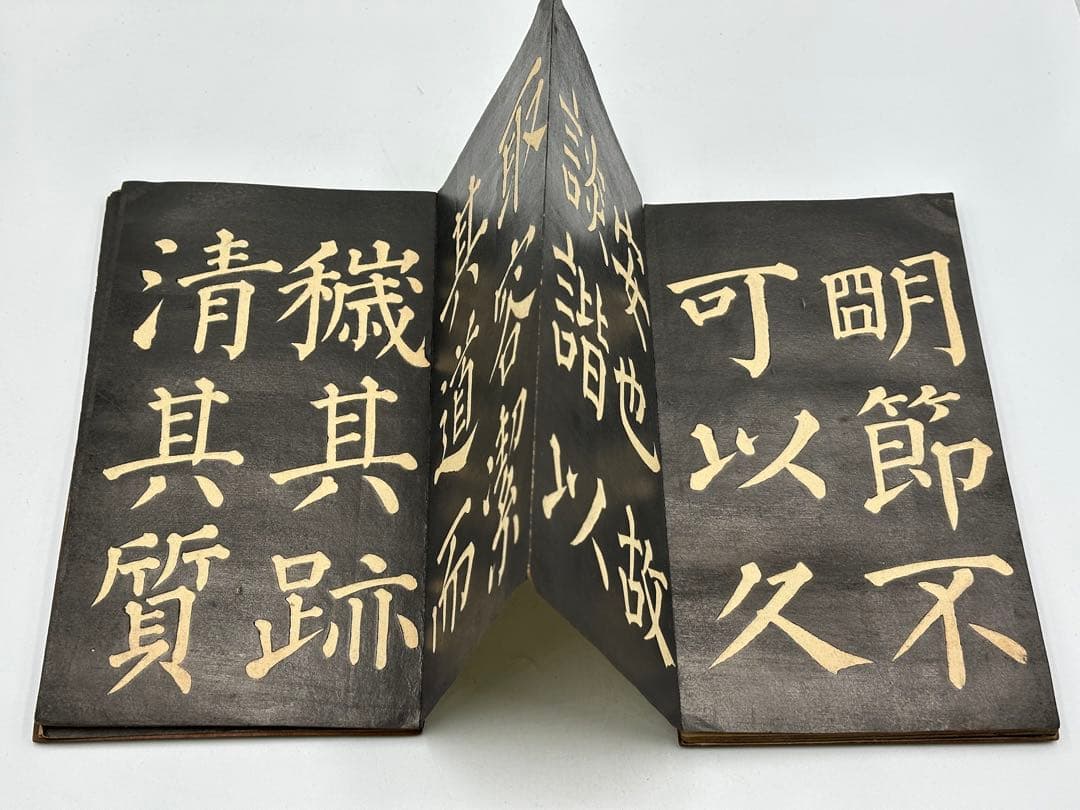 明節不
可以久
安也故
談諧以
取容潔
其道而
穢其跡
清其質